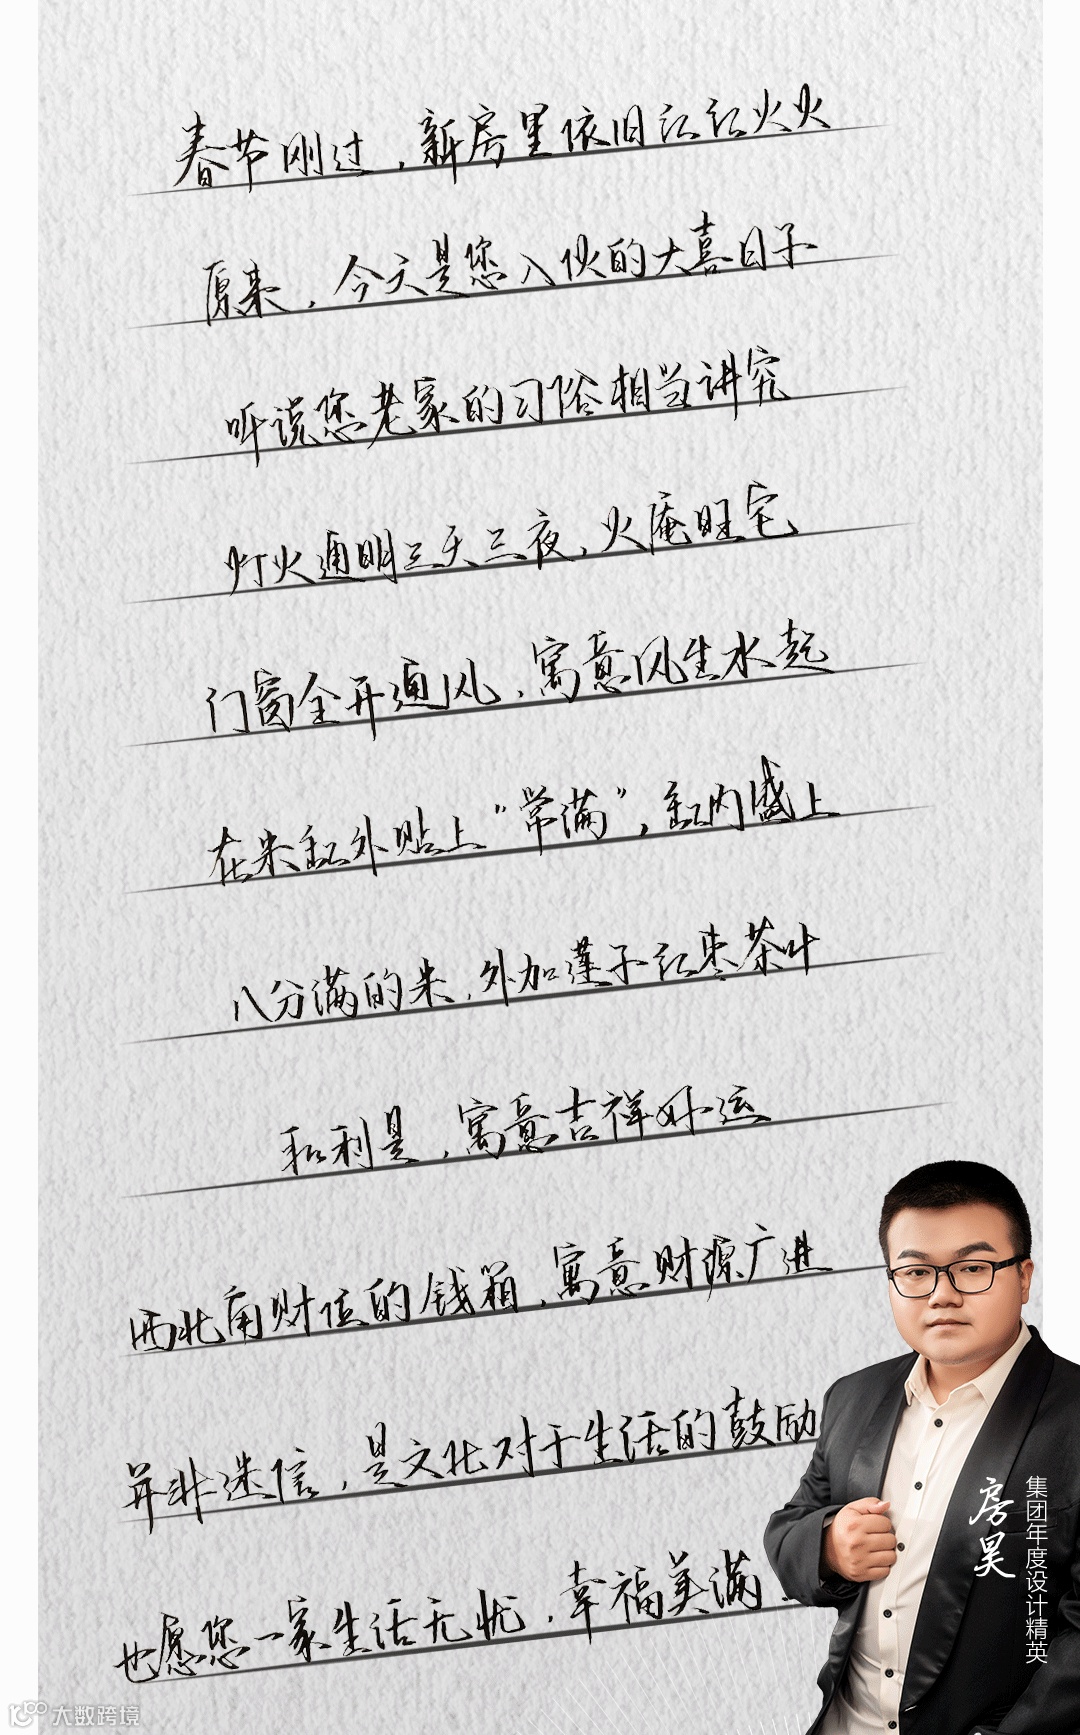 春节刚过，新房里依旧红红火火
原来，今天是您入伙的大喜日子
听说您老家的习俗相当讲究
灯火通明三天三夜，火庵旺宅
门窗全开通风，寓意风生水起
在米缸外贴上“常满”，缸内盛上
八分满的米，外加莲子红枣茶叶
和利是，寓意吉祥好运
西北角财位的钱箱，寓意财源广进
并非迷信，是文化对于生活的鼓励
也愿您一家生活无忧，幸福美满.
房昊
集团年度设计精英
大数跨境